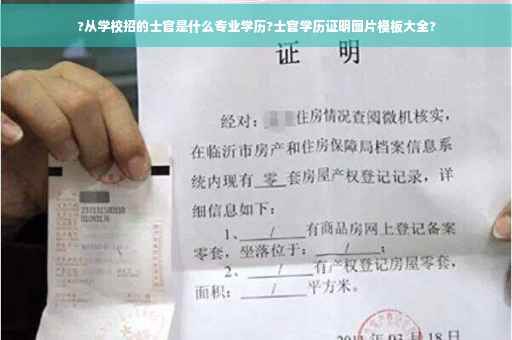 ?从学校招的士官是什么专业学历?士官学历证明图片模板大全?
证 明
经对:住房情况查阅微机核实,
在临沂市房产和住房保障局档案信息系
统内现有 零 套房屋产权登记记录,详
细信息如下:
1、 / 有商品房网上登记备案
零套,坐落位于: / ;
2、 / 有产权登记房屋零套,
面积: / 平方米。
03月18日